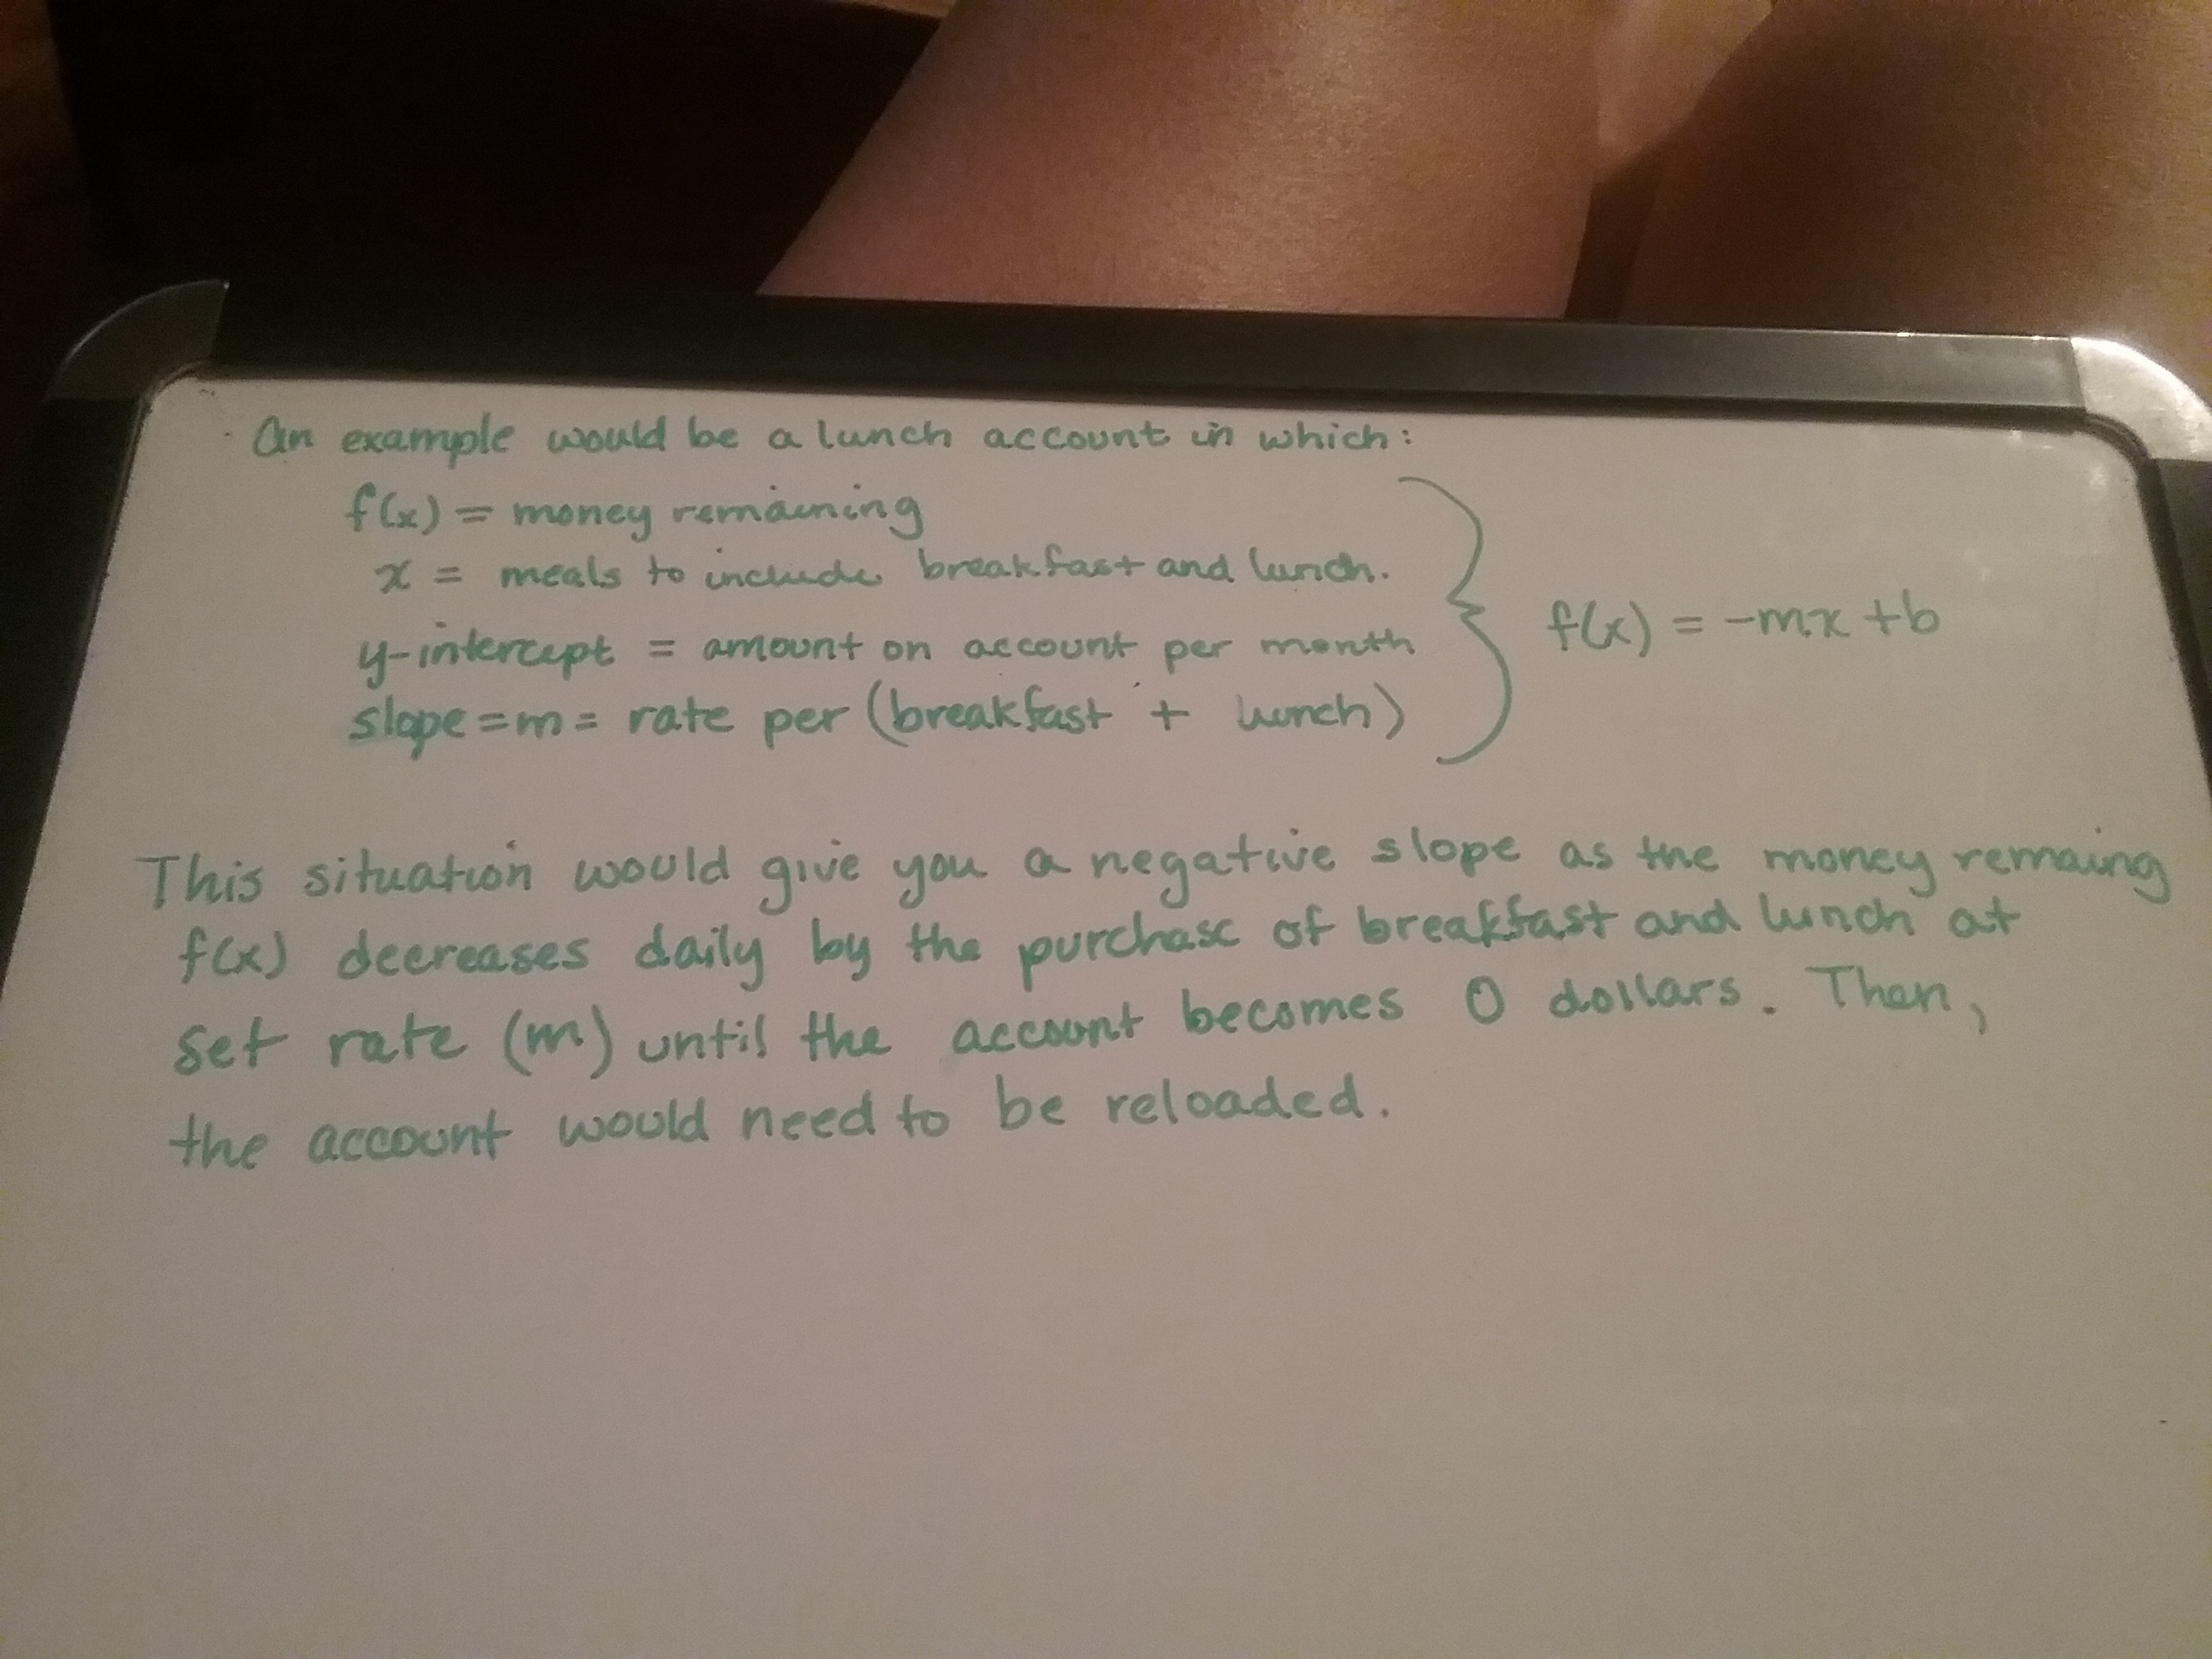 An example would be a lunch account in which:
f(x) = money remaining
x = meals to include breakfast and lunch.
y-intercept = amount on account per month
slope = m = rate per (breakfast + lunch)
f(x) = -mx + b
This situation would give you a negative slope as the money remaing
f(x) decreases daily by the purchase of breakfast and lunch at
set rate (m) until the account becomes 0 dollars. Then,
the account would need to be reloaded.